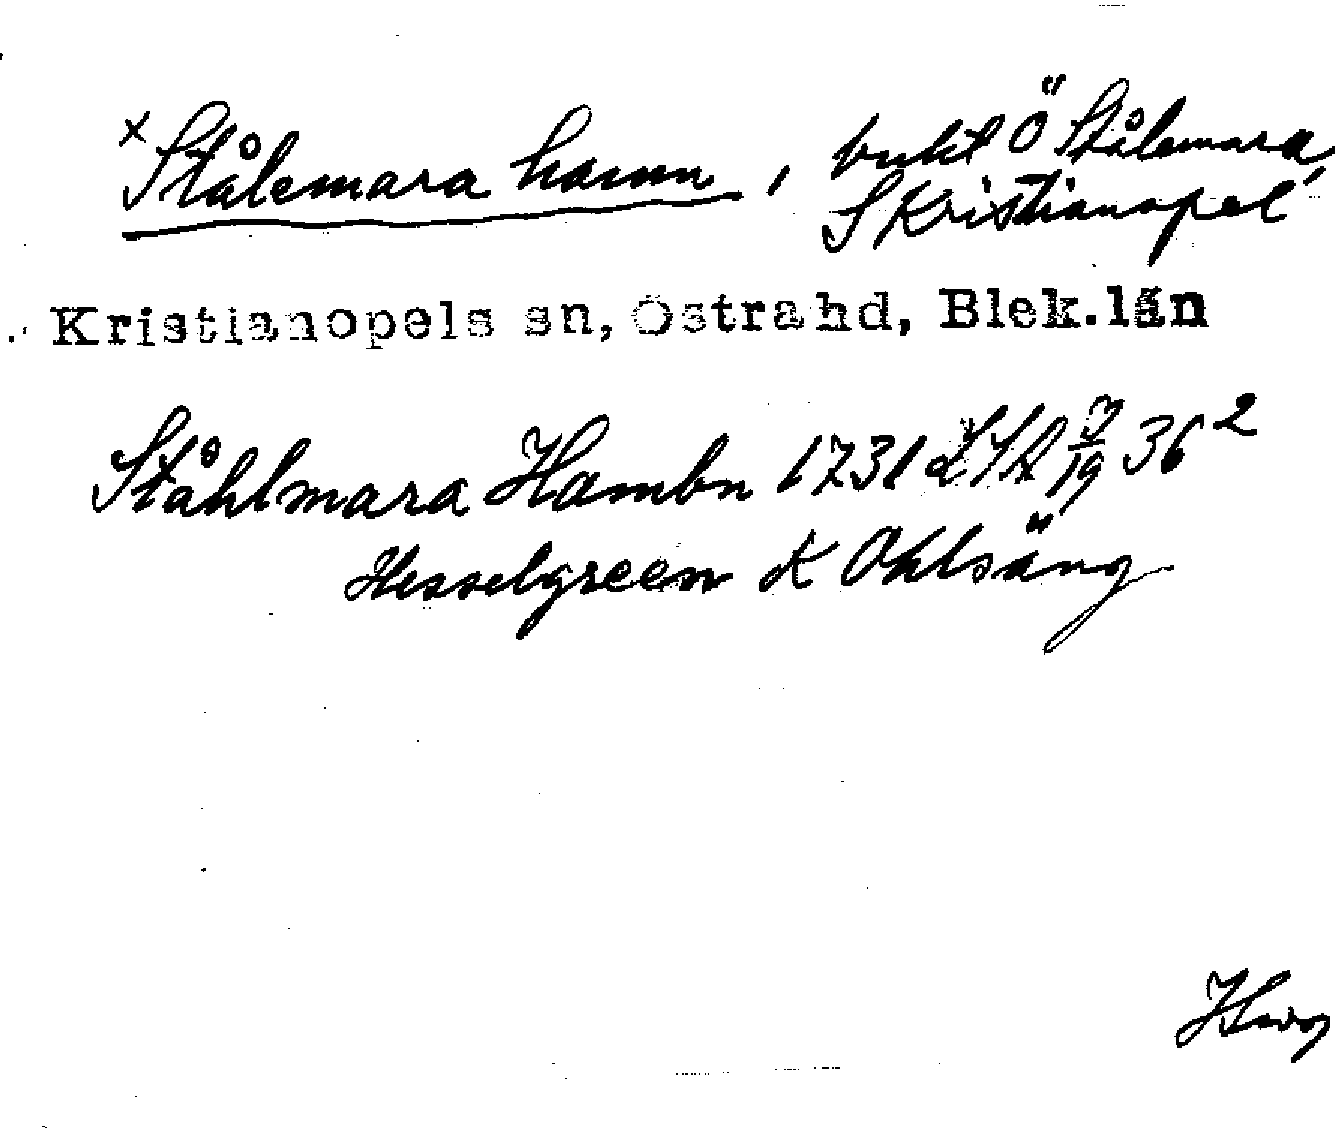 x Stålemara hamn, bukt Ö Stålemara,
S Kristianopel
Kristianopels sn, Östra hd, Blek.län
Ståhlmara Hambn 1731 LSA 19 36²
Hesselgreen K Ohlsäng